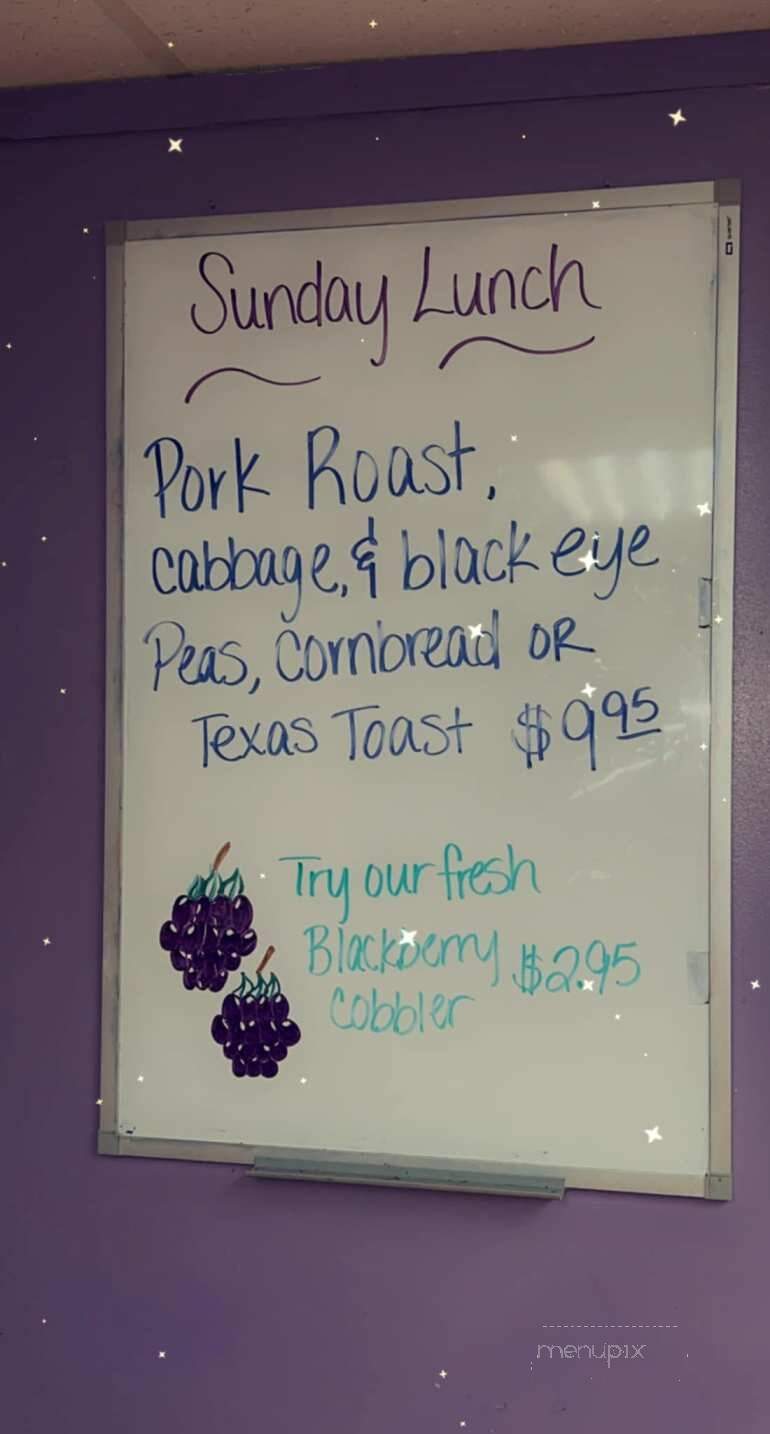 Sunday Lunch
Pork Roast,
cabbage, & black eye
Peas, Cornbread OR
Texas Toast $9.95
Try our fresh
Blackberry $2.95
Cobbler
menupix